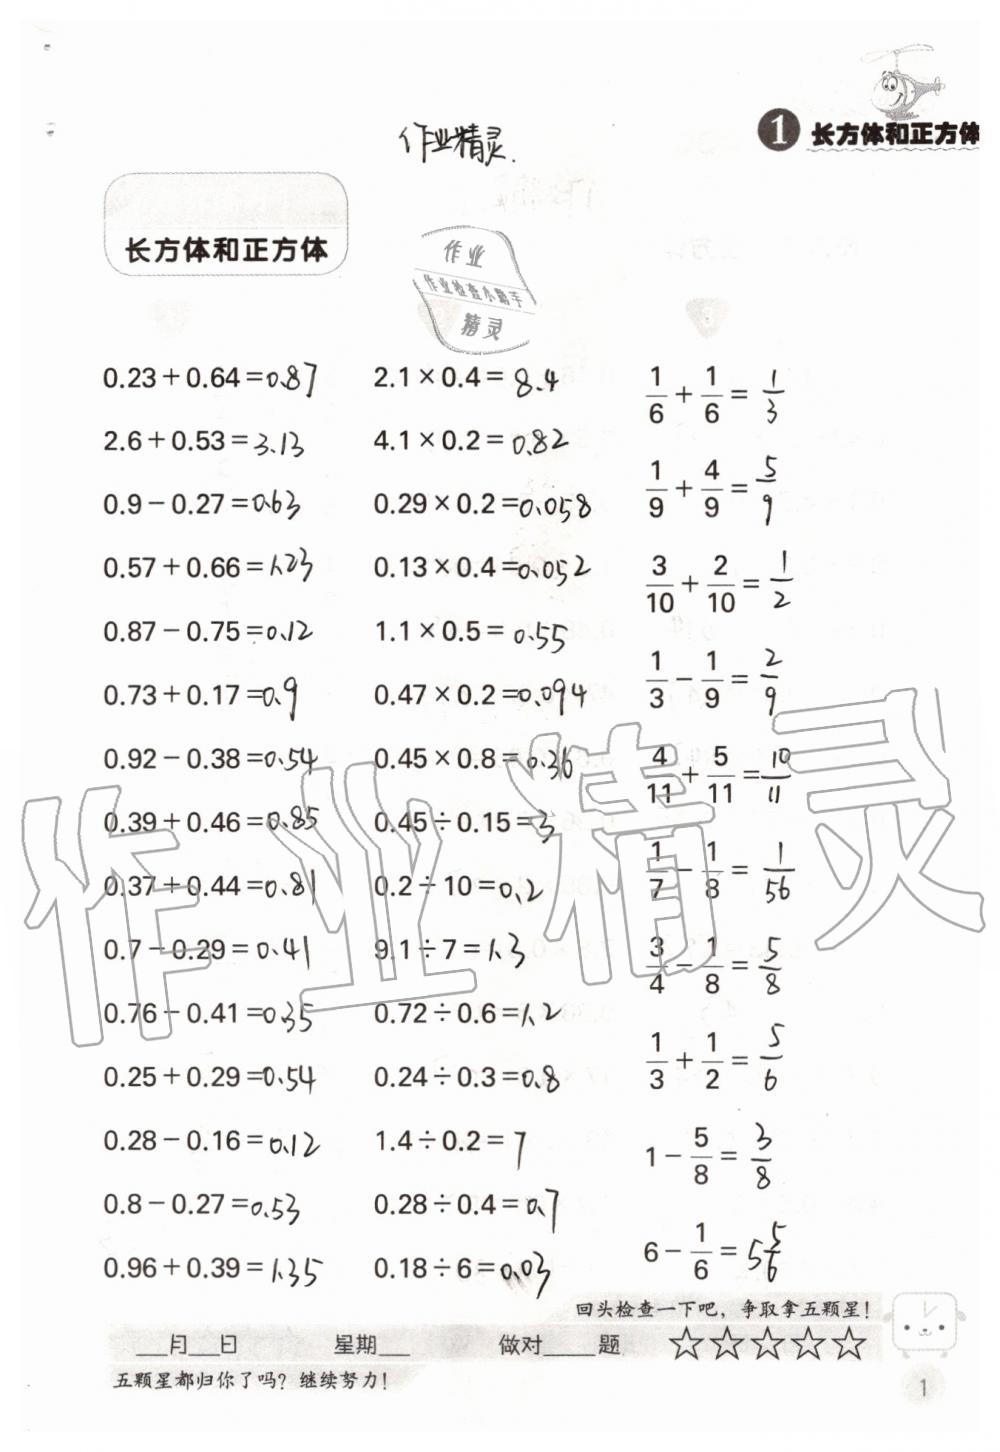 作业精灵.
1 长方体和正方体
长方体和正方体
作业
作业检查小助手
精灵
0.23+0.64=0.87
2.6+0.53=3.13
0.9-0.27=0.63
0.57+0.66=1.23
0.87-0.75=0.12
0.73+0.17=0.9
0.92-0.38=0.54
0.39+0.46=0.85
0.37+0.44=0.81
0.7-0.29=0.41
0.76-0.41=0.35
0.25+0.29=0.54
0.28-0.16=0.12
0.8-0.27=0.53
0.96+0.39=1.35
2.1×0.4=8.4
4.1×0.2=0.82
0.29×0.2=0.058
0.13×0.4=0.052
1.1×0.5=0.55
0.47×0.2=0.094
0.45×0.8=0.36
0.45÷0.15=3
0.2÷10=0.2
9.1÷7=1.3
0.72÷0.6=1.2
0.24÷0.3=0.8
1.4÷0.2=7
0.28÷0.4=0.7
0.18÷6=0.03
1/6+1/6=1/3
1/9+4/9=5/9
3/10+2/10=1/2
1/3-1/9=2/9
4/11+5/11=10/11
1/7-1/8=1/56
3/4-1/8=5/8
1/3+1/2=5/6
1-5/8=3/8
6-1/6=5 5/6
作业精灵
回头检查一下吧，争取拿五颗星！
___月___日 星期___ 做对_____题 ☆☆☆☆☆
五颗星都归你了吗？继续努力！
1